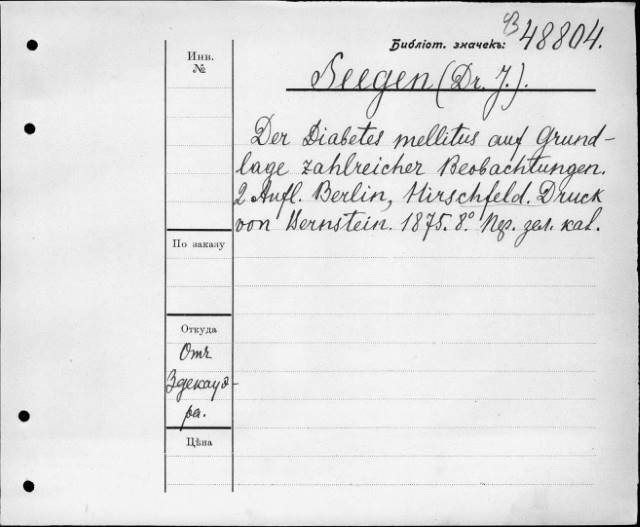 Библіот. значекъ: В 48804.
Инв.
№
Seegen (Dr. J.).
Der Diabetes mellitus auf Grund-
lage zahlreicher Beobachtungen.
2 Aufl. Berlin, Hirschfeld. Druck
von Bernstein. 1875. 8° Пер. зел. кал.
По заказу
Откуда
Отъ
Здекауэ-
ра.
Цѣна